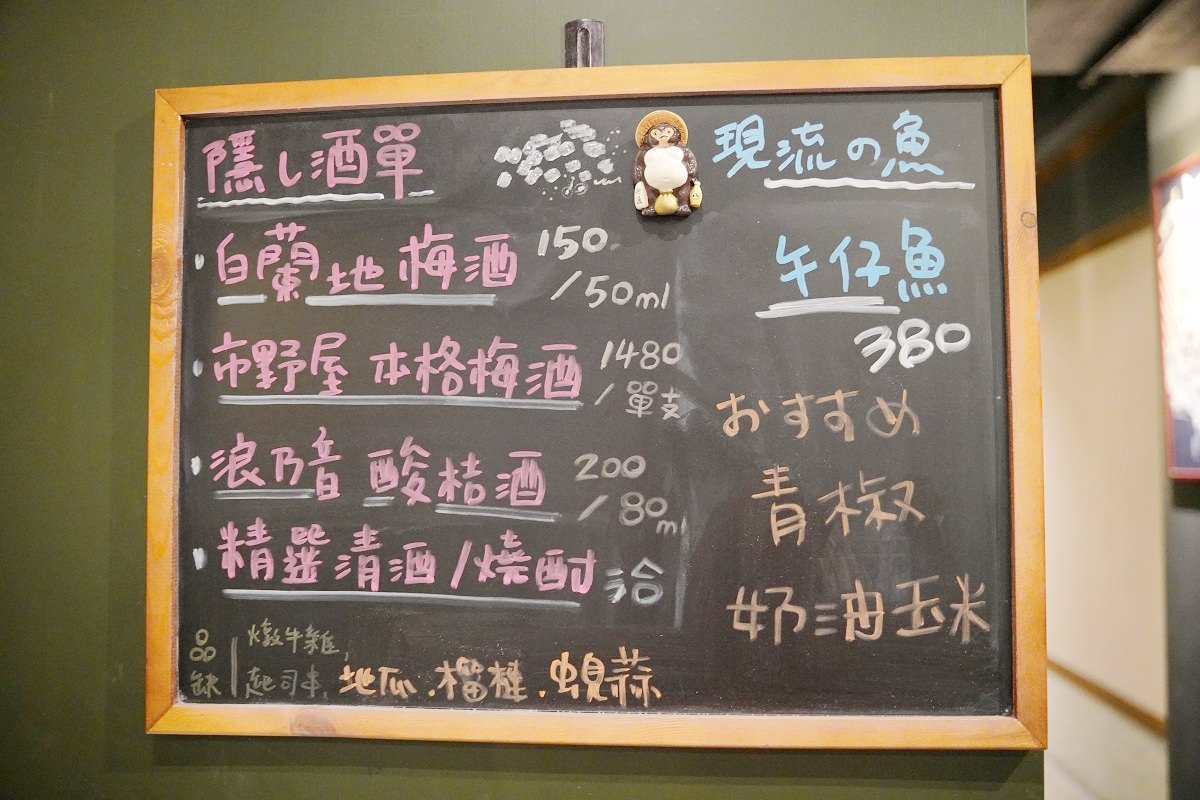 隱し酒單
白蘭地 梅酒 150
/50ml
市野屋 本格梅酒 1480
/單支
浪乃音 酸桔酒 200
/80ml
精選清酒/燒酎 洽
品缺
燉牛雜,
起司串, 地瓜.榴槤.蜆蒜
現流の魚
午仔魚
380
おすすめ
青椒
奶油玉米